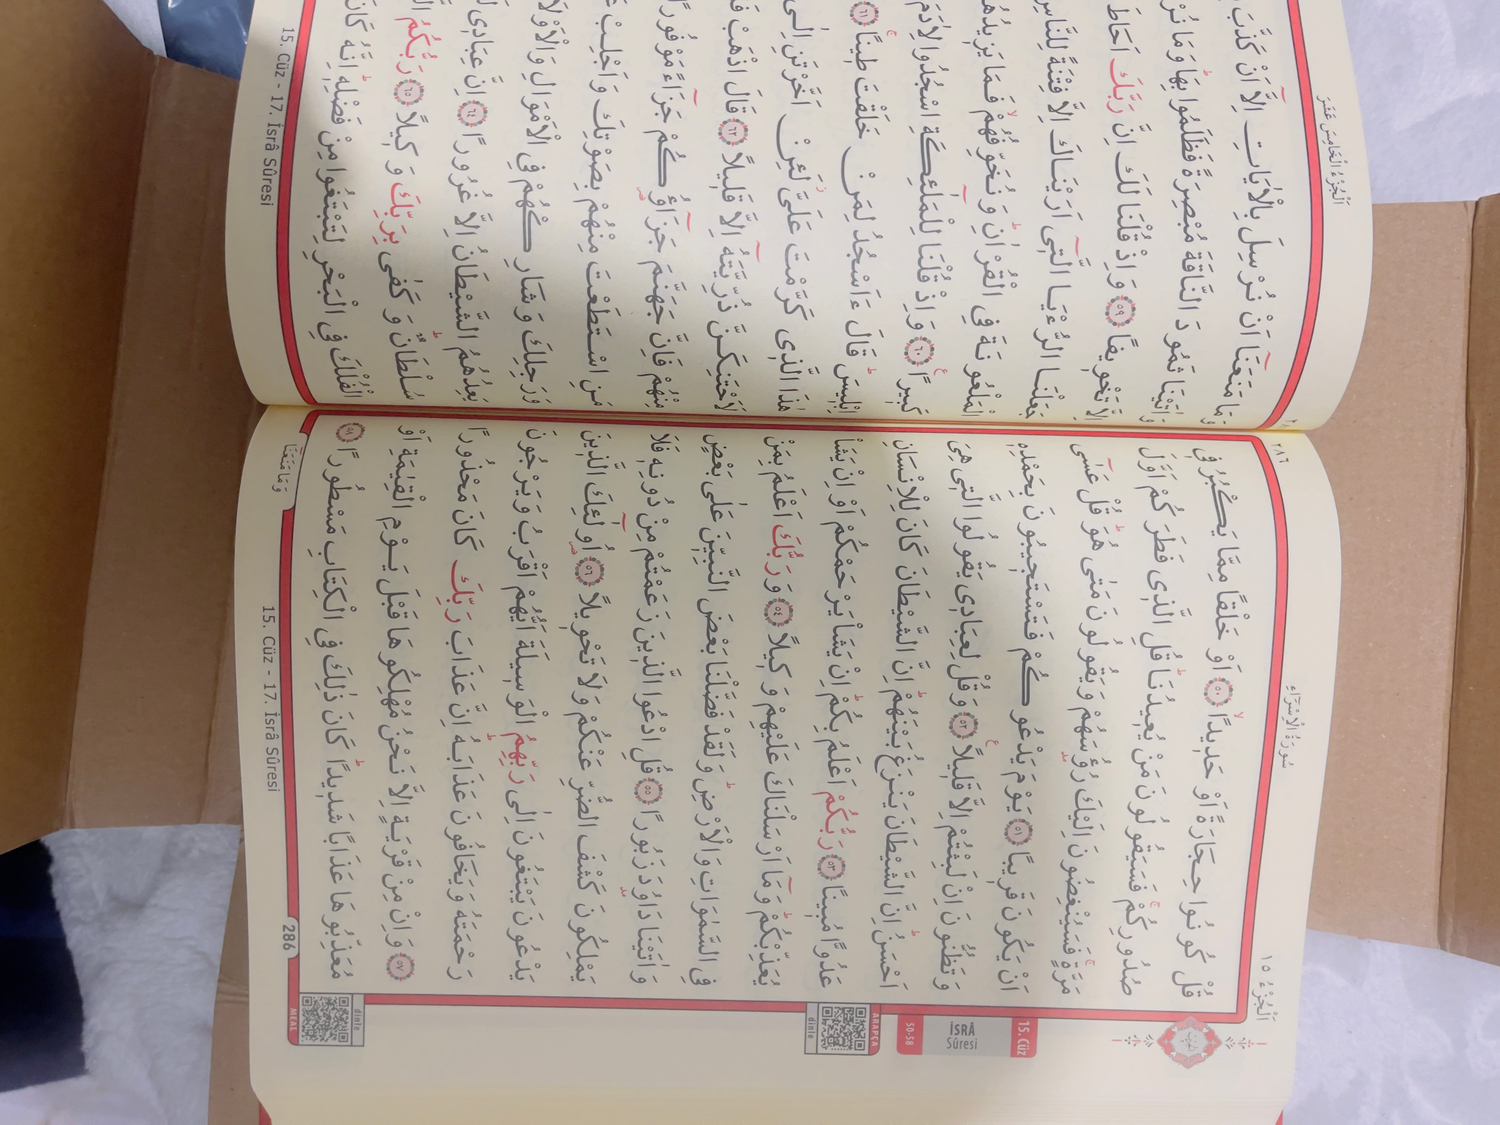 سُورَةُ الْاِسْرَٓاءِ
اَلْجُزْءُ ١٥
٢٨٦
قُلْ كُونُوا حِجَارَةً اَوْ حَد۪يداًۙ ﴿٥٠﴾ اَوْ خَلْقاً مِمَّا يَكْبُرُ ف۪ي
صُدُورِكُمْۚ فَسَيَقُولُونَ مَنْ يُع۪يدُنَاۜ قُلِ الَّذ۪ي فَطَرَكُمْ اَوَّلَ
مَرَّةٍۚ فَسَيُنْغِضُونَ اِلَيْكَ رُؤُ۫سَهُمْ وَيَقُولُونَ مَتٰى هُوَۜ قُلْ عَسٰٓى
اَنْ يَكُونَ قَر۪يباً ﴿٥١﴾ يَوْمَ يَدْعُوكُمْ فَتَسْتَج۪يبُونَ بِحَمْدِه۪
وَتَظُنُّونَ اِنْ لَبِثْتُمْ اِلَّا قَل۪يلاً۟ ﴿٥٢﴾ وَقُلْ لِعِبَاد۪ي يَقُولُوا الَّت۪ي هِيَ
اَحْسَنُۜ اِنَّ الشَّيْطَانَ يَنْزَغُ بَيْنَهُمْۜ اِنَّ الشَّيْطَانَ كَانَ لِلْاِنْسَانِ
عَدُواًّ مُب۪يناً ﴿٥٣﴾ رَبُّكُمْ اَعْلَمُ بِكُمْۜ اِنْ يَشَأْ يَرْحَمْكُمْ اَوْ اِنْ يَشَأْ
يُعَذِّبْكُمْۜ وَمَٓا اَرْسَلْنَاكَ عَلَيْهِمْ وَك۪يلاً ﴿٥٤﴾ وَرَبُّكَ اَعْلَمُ بِمَنْ
فِي السَّمٰوَاتِ وَالْاَرْضِۜ وَلَقَدْ فَضَّلْنَا بَعْضَ النَّبِيّ۪نَ عَلٰى بَعْضٍ
وَاٰتَيْنَا دَاوُ۫دَ زَبُوراً ﴿٥٥﴾ قُلِ ادْعُوا الَّذ۪ينَ زَعَمْتُمْ مِنْ دُونِه۪ فَلَا
يَمْلِكُونَ كَشْفَ الضُّرِّ عَنْكُمْ وَلَا تَحْو۪يلاً ﴿٥٦﴾ اُو۬لٰٓئِكَ الَّذ۪ينَ
يَدْعُونَ يَبْتَغُونَ اِلٰى رَبِّهِمُ الْوَس۪يلَةَ اَيُّهُمْ اَقْرَبُ وَيَرْجُونَ
رَحْمَتَهُ وَيَخَافُونَ عَذَابَهُۜ اِنَّ عَذَابَ رَبِّكَ كَانَ مَحْذُوراً
﴿٥٧﴾ وَاِنْ مِنْ قَرْيَةٍ اِلَّا نَحْنُ مُهْلِكُوهَا قَبْلَ يَوْمِ الْقِيٰمَةِ اَوْ
مُعَذِّبُوهَا عَذَاباً شَد۪يداًۜ كَانَ ذٰلِكَ فِي الْكِتَابِ مَسْطُوراً ﴿٥٨﴾
وَمَا مَنَعَنَٓا
15. Cüz - 17. İsrâ Sûresi
286
15. Cüz
İSRÂ
Sûresi
50-58
ARAPÇA
dinle
dinle
MEAL
اَلْجُزْءُ الْخَامِسَ عَشَرَ
وَمَا مَنَعَنَٓا اَنْ نُرْسِلَ بِالْاٰيَاتِ اِلَّٓا اَنْ كَذَّبَ
وَاٰتَيْنَا ثَمُودَ النَّاقَةَ مُبْصِرَةً فَظَلَمُوا بِهَاۜ وَمَا نُرْ
اِلَّا تَخْو۪يفاً ﴿٥٩﴾ وَاِذْ قُلْنَا لَكَ اِنَّ رَبَّكَ اَحَاطَ
جَعَلْنَا الرُّءْيَا الَّت۪ٓي اَرَيْنَاكَ اِلَّا فِتْنَةً لِلنَّاسِ
الْمَلْعُونَةَ فِي الْقُرْاٰنِۜ وَنُخَوِّفُهُمْۙ فَمَا يَز۪يدُهُمْ
كَب۪يراً۟ ﴿٦٠﴾ وَاِذْ قُلْنَا لِلْمَلٰٓئِكَةِ اسْجُدُوا لِاٰدَمَ
اِبْل۪يسَۜ قَالَ ءَاَسْجُدُ لِمَنْ خَلَقْتَ ط۪يناًۚ ﴿٦١﴾
هٰذَا الَّذ۪ي كَرَّمْتَ عَلَيَّۘ لَئِنْ اَخَّرْتَنِ اِلٰى
لَاَحْتَنِكَنَّ ذُرِّيَّتَهُٓ اِلَّا قَل۪يلاً ﴿٦٢﴾ قَالَ اذْهَبْ فَ
مِنْهُمْ فَاِنَّ جَهَنَّمَ جَزَٓاؤُ۬كُمْ جَزَٓاءً مَوْفُوراً
مَنِ اسْتَطَعْتَ مِنْهُمْ بِصَوْتِكَ وَاَجْلِبْ عَ
وَرَجِلِكَ وَشَارِكْهُمْ فِي الْاَمْوَالِ وَالْاَوْلَا
يَعِدُهُمُ الشَّيْطَانُ اِلَّا غُرُوراً ﴿٦٤﴾ اِنَّ عِبَاد۪ي لَ
سُلْطَانٌۜ وَكَفٰى بِرَبِّكَ وَك۪يلاً ﴿٦٥﴾ رَبُّكُمُ
الْفُلْكَ فِي الْبَحْرِ لِتَبْتَغُوا مِنْ فَضْلِه۪ۜ اِنَّهُ كَانَ
15. Cüz - 17. İsrâ Sûresi